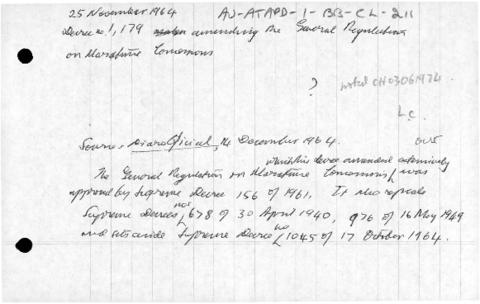 25 November 1964 AJ-ATAPD-1-BB-CL-211
Decree 1,179 amending the General Regulation
on Maritime Concessions
?
Source: Diario Oficial, 14 December 1964.
which this decree amended extensively
The General Regulation on Maritime Concessions, was
approved by Supreme Decree 156 of 1961. It also repeals
Supreme Decrees nos 678 of 30 April 1940, 976 of 16 May 1949
and sets aside Supreme Decree no 1045 of 17 October 1964.